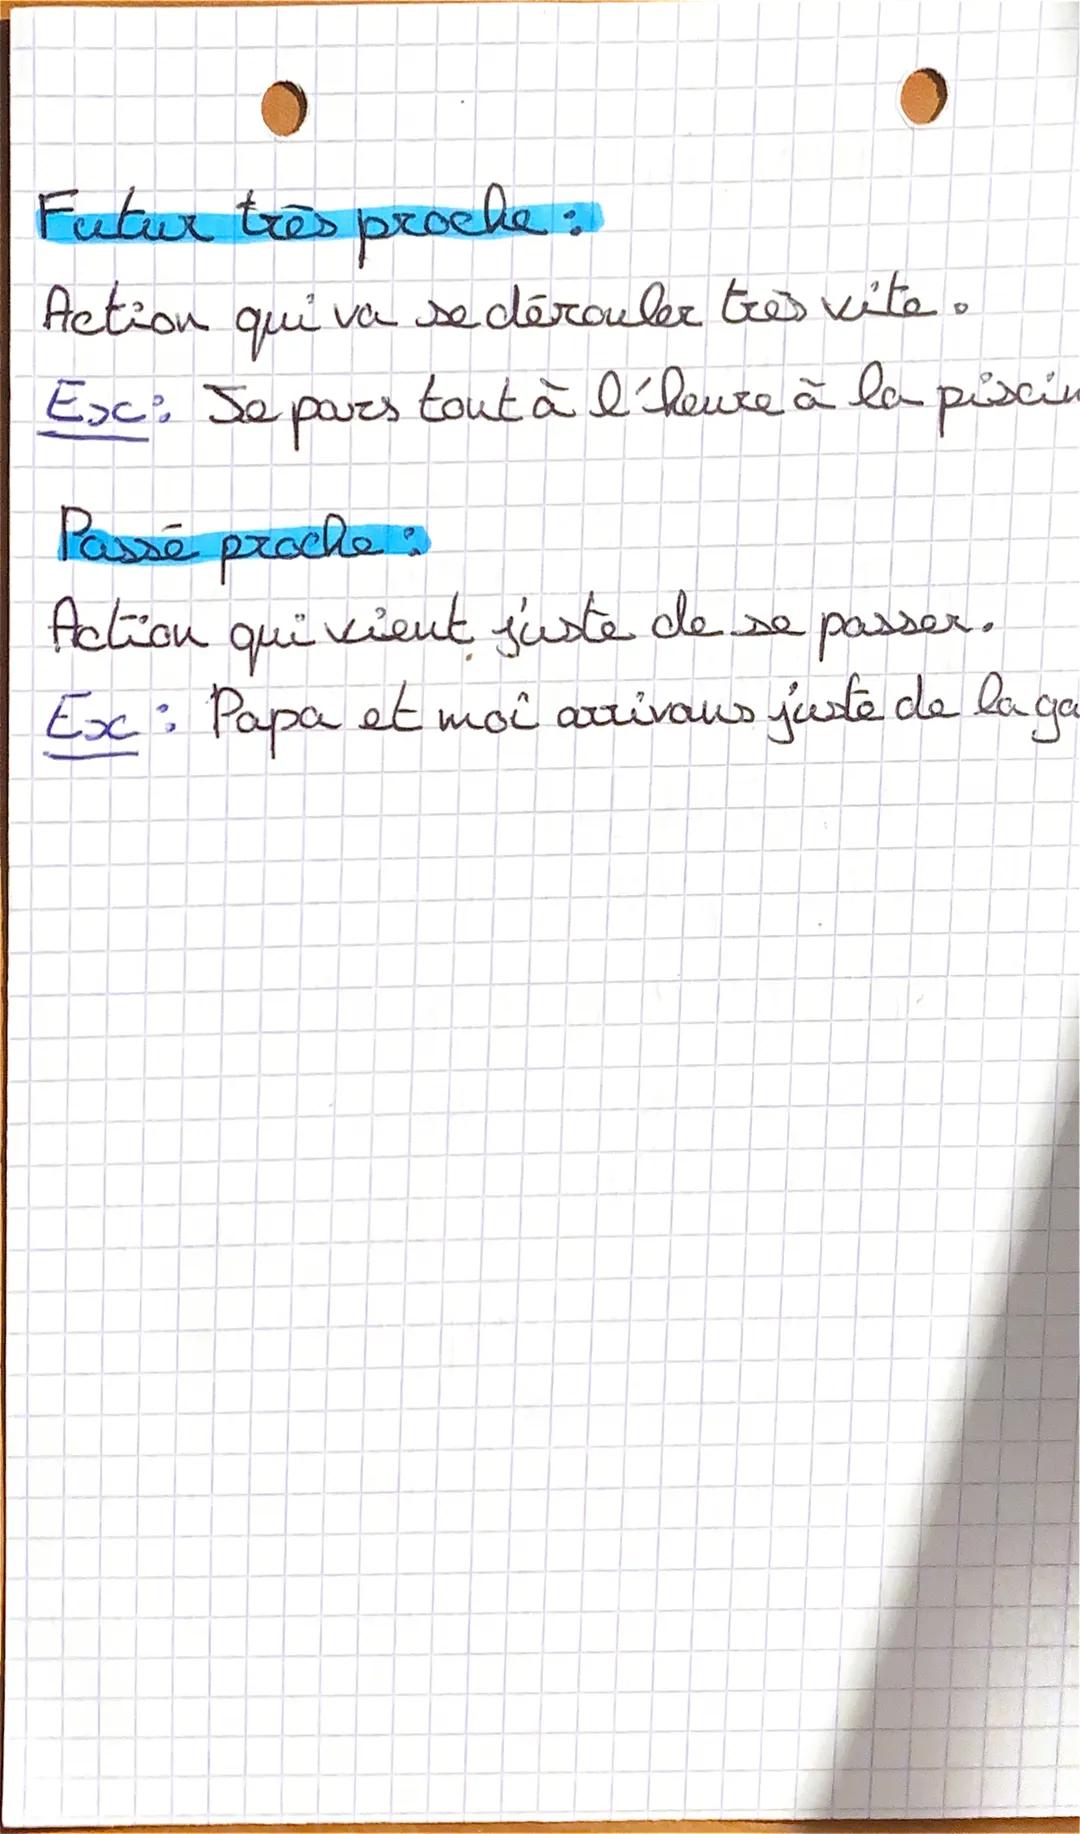 Futur très proche :
Action qui va se dérouler très vite.
Ex : Je pars tout à l'heure à la piscin
Passé proche :
Action qui vient juste de se passer.
Ex : Papa et moi arrivons juste de la ga